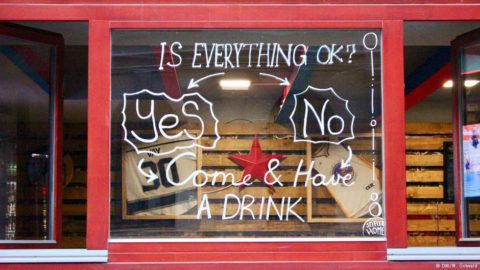 IS EVERYTHING OK?
Yes
No
Come & Have
A DRINK